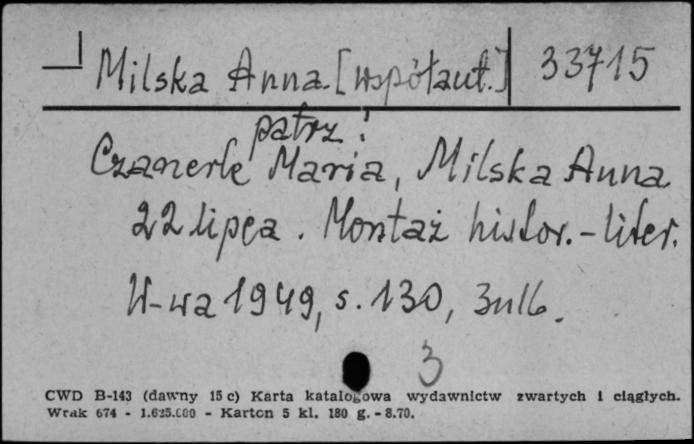 Milska Anna. [współaut.] 33715
patrz:
Czanerle Maria, Milska Anna.
22 lipca. Montaż histor.-liter.
W-wa 1949, s. 130, 3nlb.
3
CWD B-143 (dawny 15 c) Karta katalogowa wydawnictw zwartych i ciągłych.
Wrak 674 - 1.625.000 - Karton 5 kl. 180 g. - 8.70.